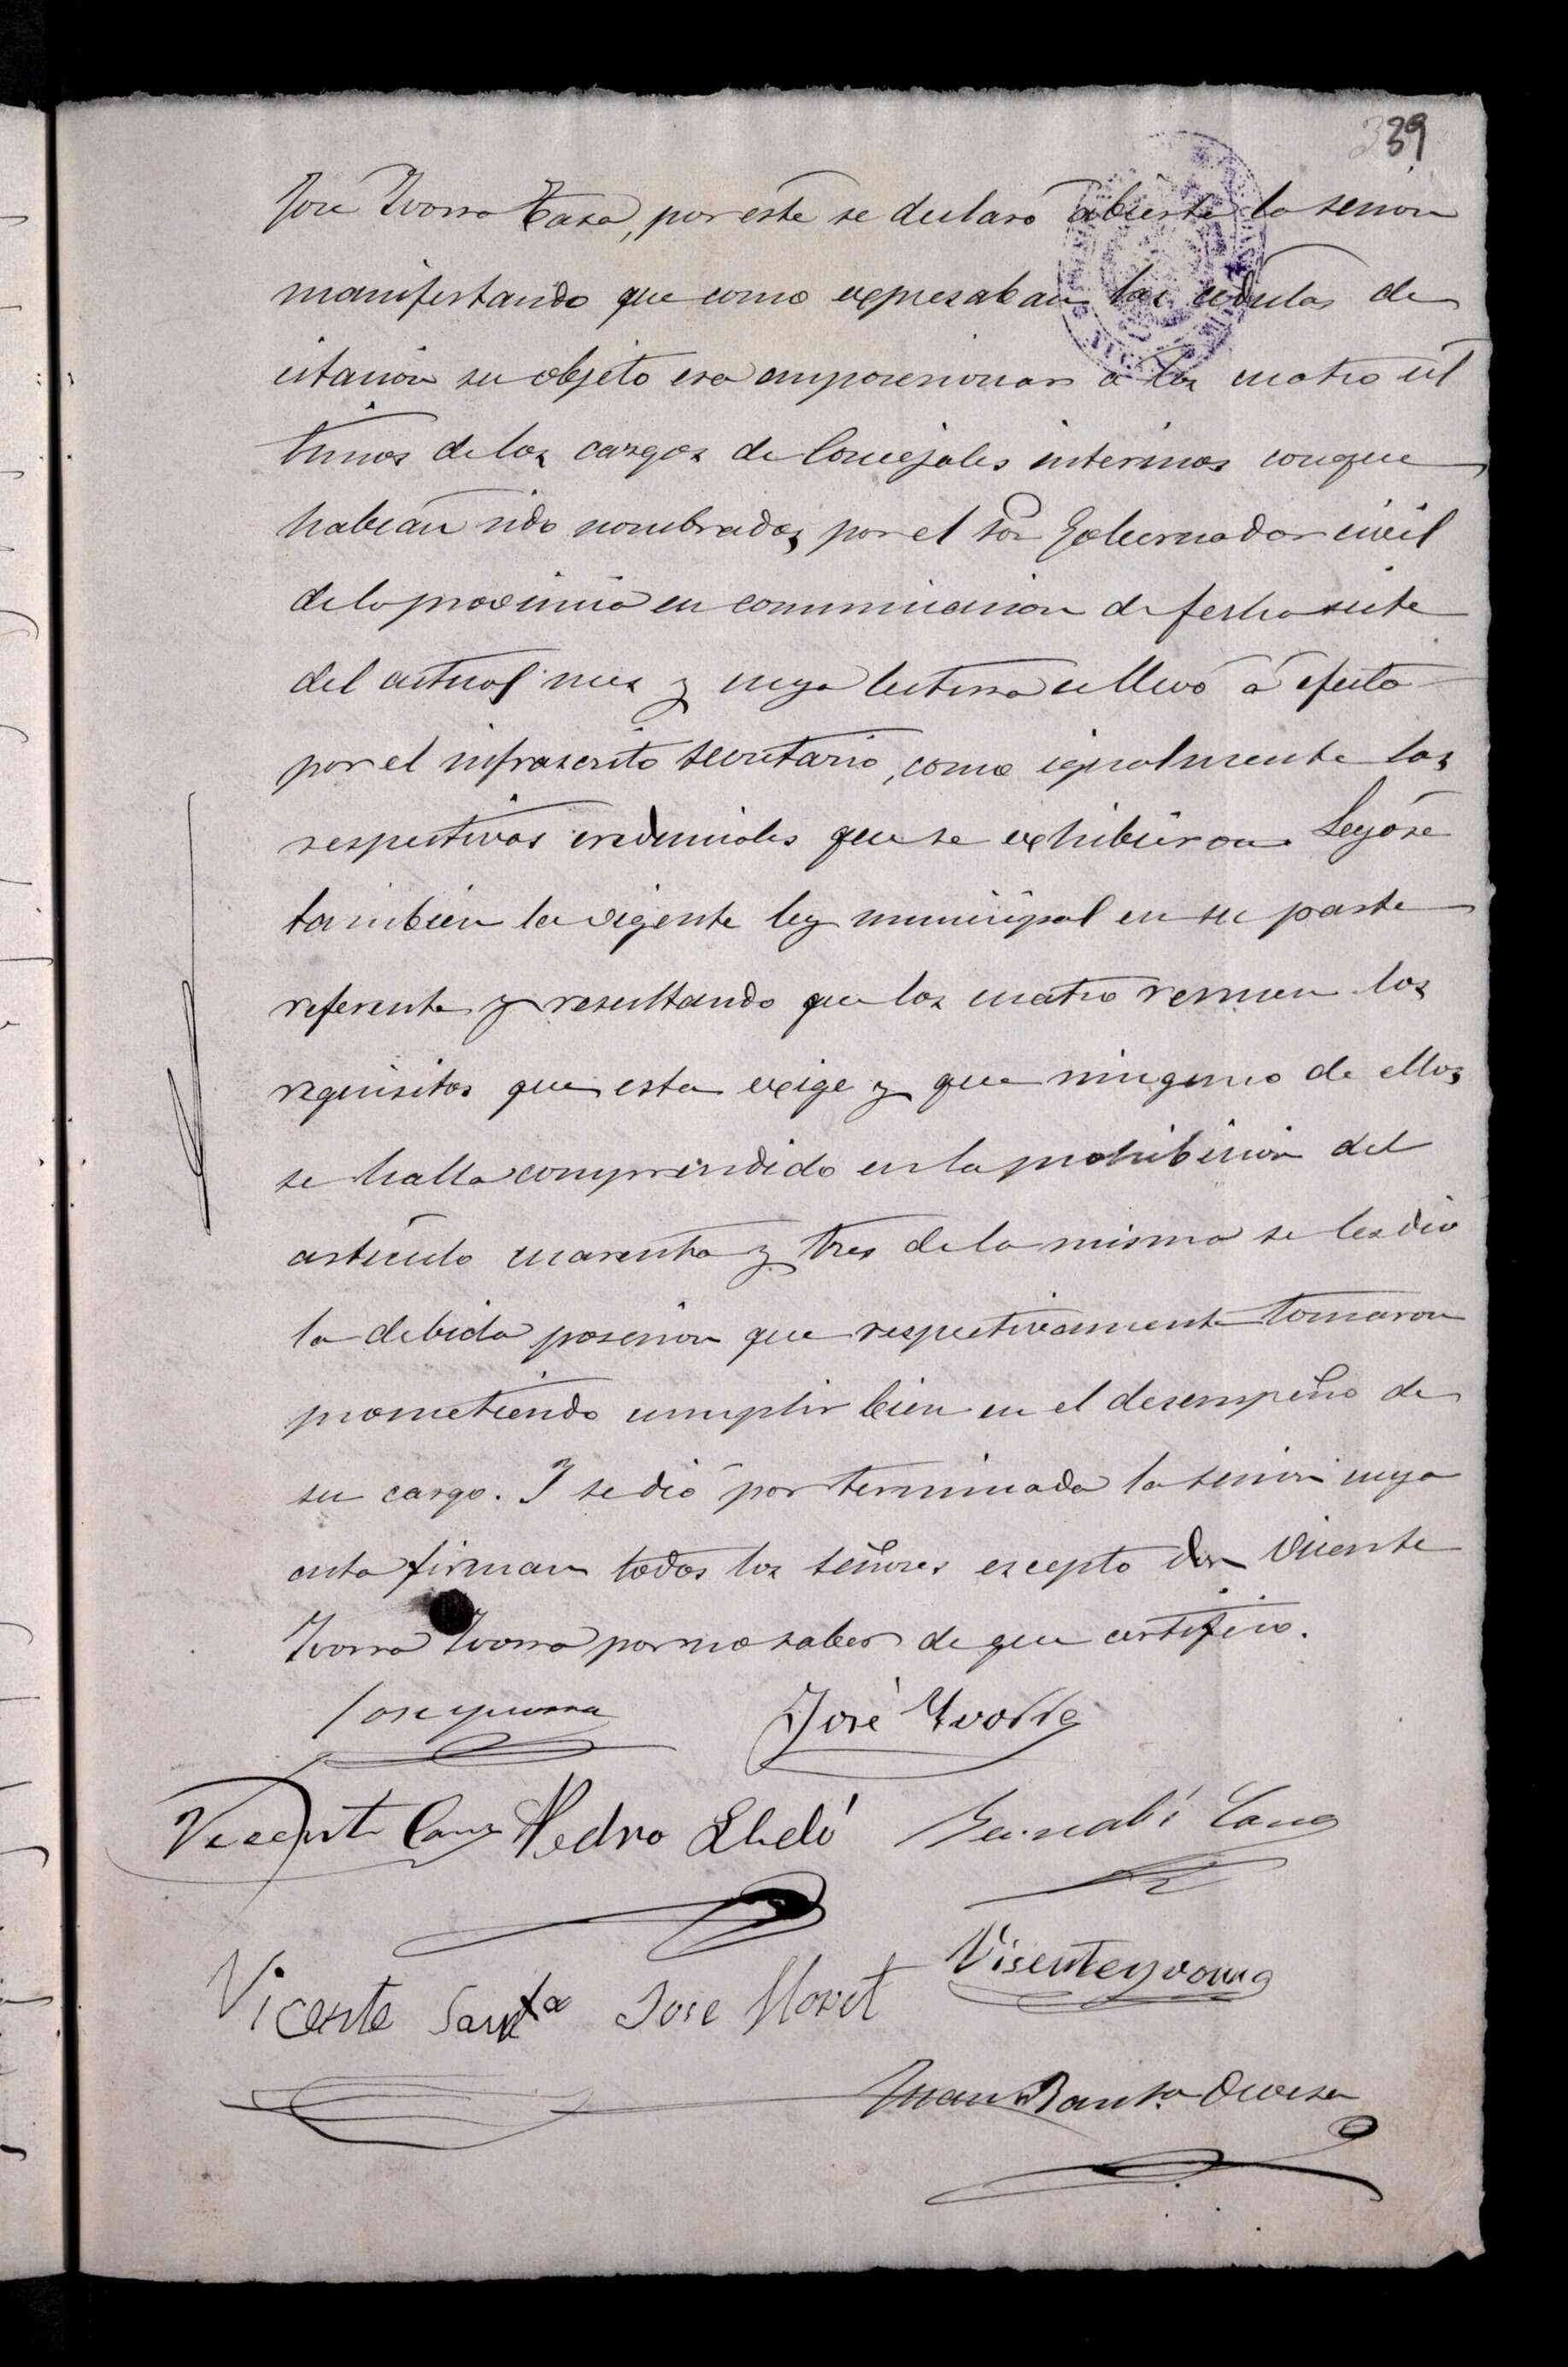 339
José Ivorra Casa, por este se declaró abierta la sesion
manifestando que como expresaban las cédulas de
citacion su objeto era amposesionar a los cuatro úl
timos de los cargos de Concejales interinos conque
habian sido nombrados por el Sor Gobernador civil
de la provincia en comunicacion de fecha siete
del actual mes y cuya lectura se llevó á efecto
por el infrascrito Secretario, como igualmente las
respectivas credenciales que se exhibieron. Leyóse
tambien la vigente ley municipal en su parte
referente y resultando que los cuatro reunen los
requisitos que esta exige y que ninguno de ellos
se halla comprendido en la prohibicion del
articulo cuarenta y tres de la misma se les dio
la debida posesion que respectivamente tomaron
prometiendo cumplir bien en el desempeño de
su cargo. Y se dió por terminada la sesion cuya
acta firman todos los Señores escepto don Vicente
Ivorra Ivorra por no saber de que certifico.
Jose yvorra José Yvorra
Vicente Cano Pedro Lledó Bernabé Cano
Visente yvorra
Vicente Santa Jose Lloret
Juan Bauta